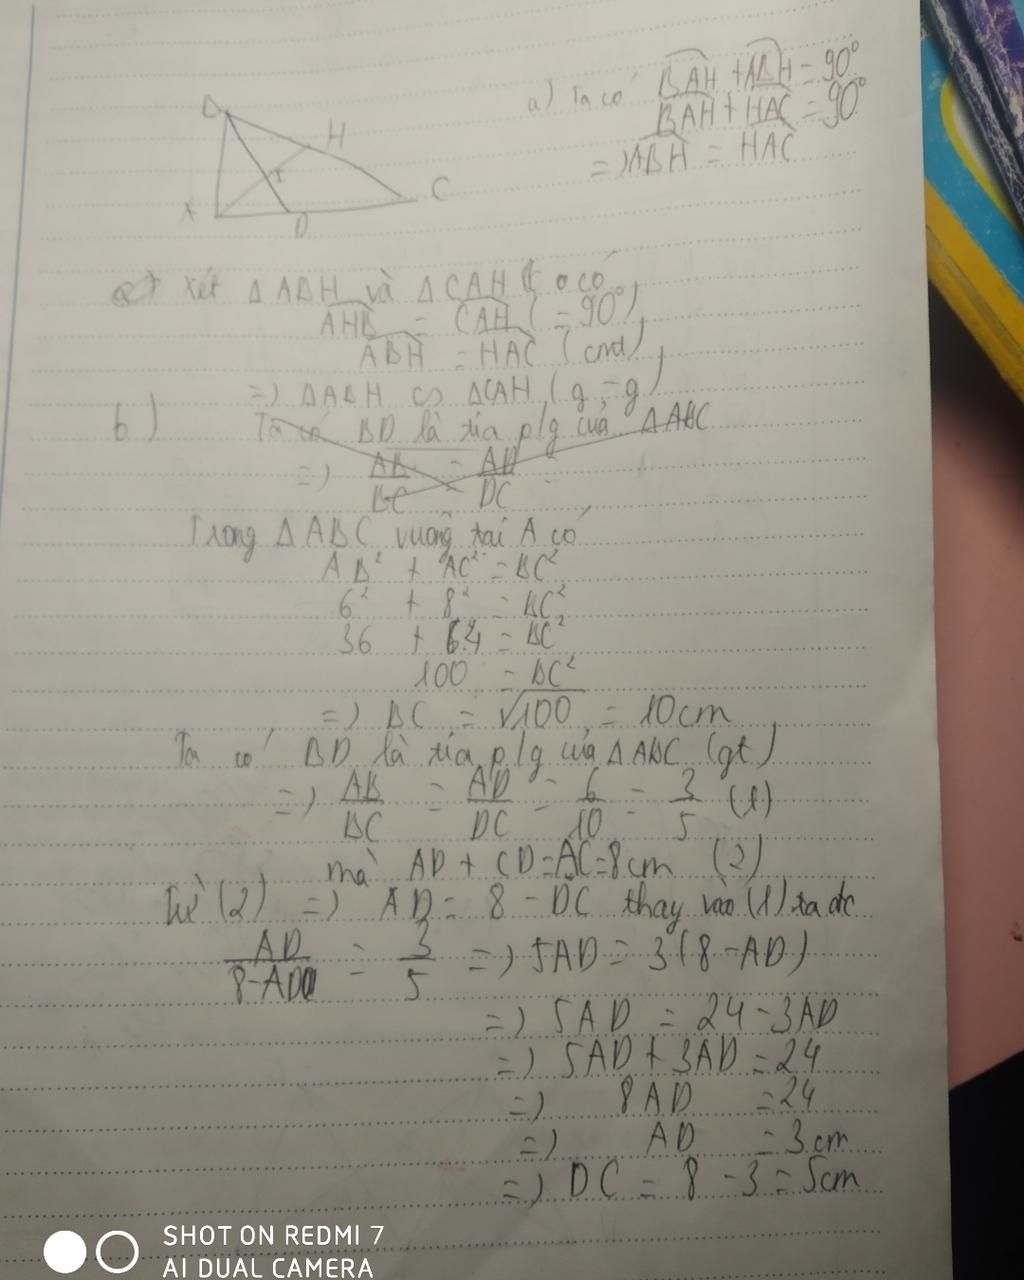 B
H
I
A
D
C
a) Ta có BAH + ABH = 90°
BAH + HAC = 90°
=) ABH = HAC
Xét Δ ABH và Δ CAH có
AHB = CAH ( = 90°)
ABH = HAC (cmt)
=) Δ ABH ∽ Δ CAH (g-g)
b)
Ta có BD là tia p/g của Δ ABC
=) AB/BC = AD/DC
Trong Δ ABC vuông tại A có
AB² + AC² = BC²
6² + 8² = BC²
36 + 64 = BC²
100 = BC²
=) BC = √100 = 10cm
Ta có BD là tia p/g của Δ ABC (gt)
=) AB/BC = AD/DC = 6/10 = 3/5 (1)
mà AD + CD = AC = 8cm (2)
Từ (2) =) AD = 8 - DC thay vào (1) ta đc
AD/8-AD = 3/5 =) 5AD = 3(8-AD)
=) 5AD = 24 - 3AD
=) 5AD + 3AD = 24
=) 8AD = 24
=) AD = 3cm
=) DC = 8 - 3 = 5cm
SHOT ON REDMI 7
AI DUAL CAMERA